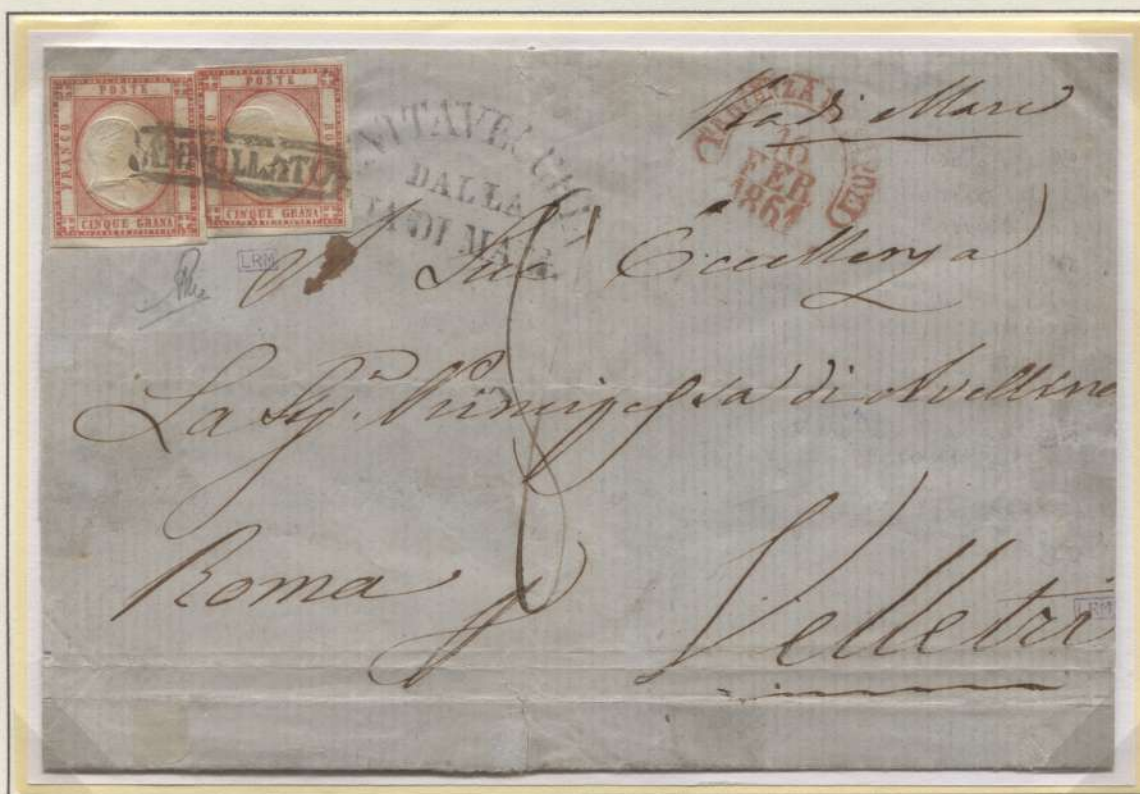 POSTE
FRANCO
CINQUE GRANA
POSTE
CINQUE GRANA
ANNULLATO
CIVITAVECCHIA
DALLA
VIA DI MARE
FEB
1861
Via di Mare
LRM
A Sua Eccellenza
La Sig.ra Principessa di Avellino
Roma p Velletri
LRM